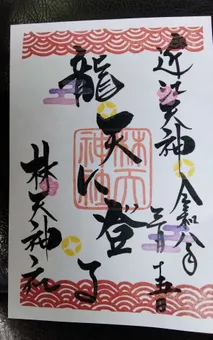 近江天神
令和八年
三月十五日
龍
天に登る
林天神社